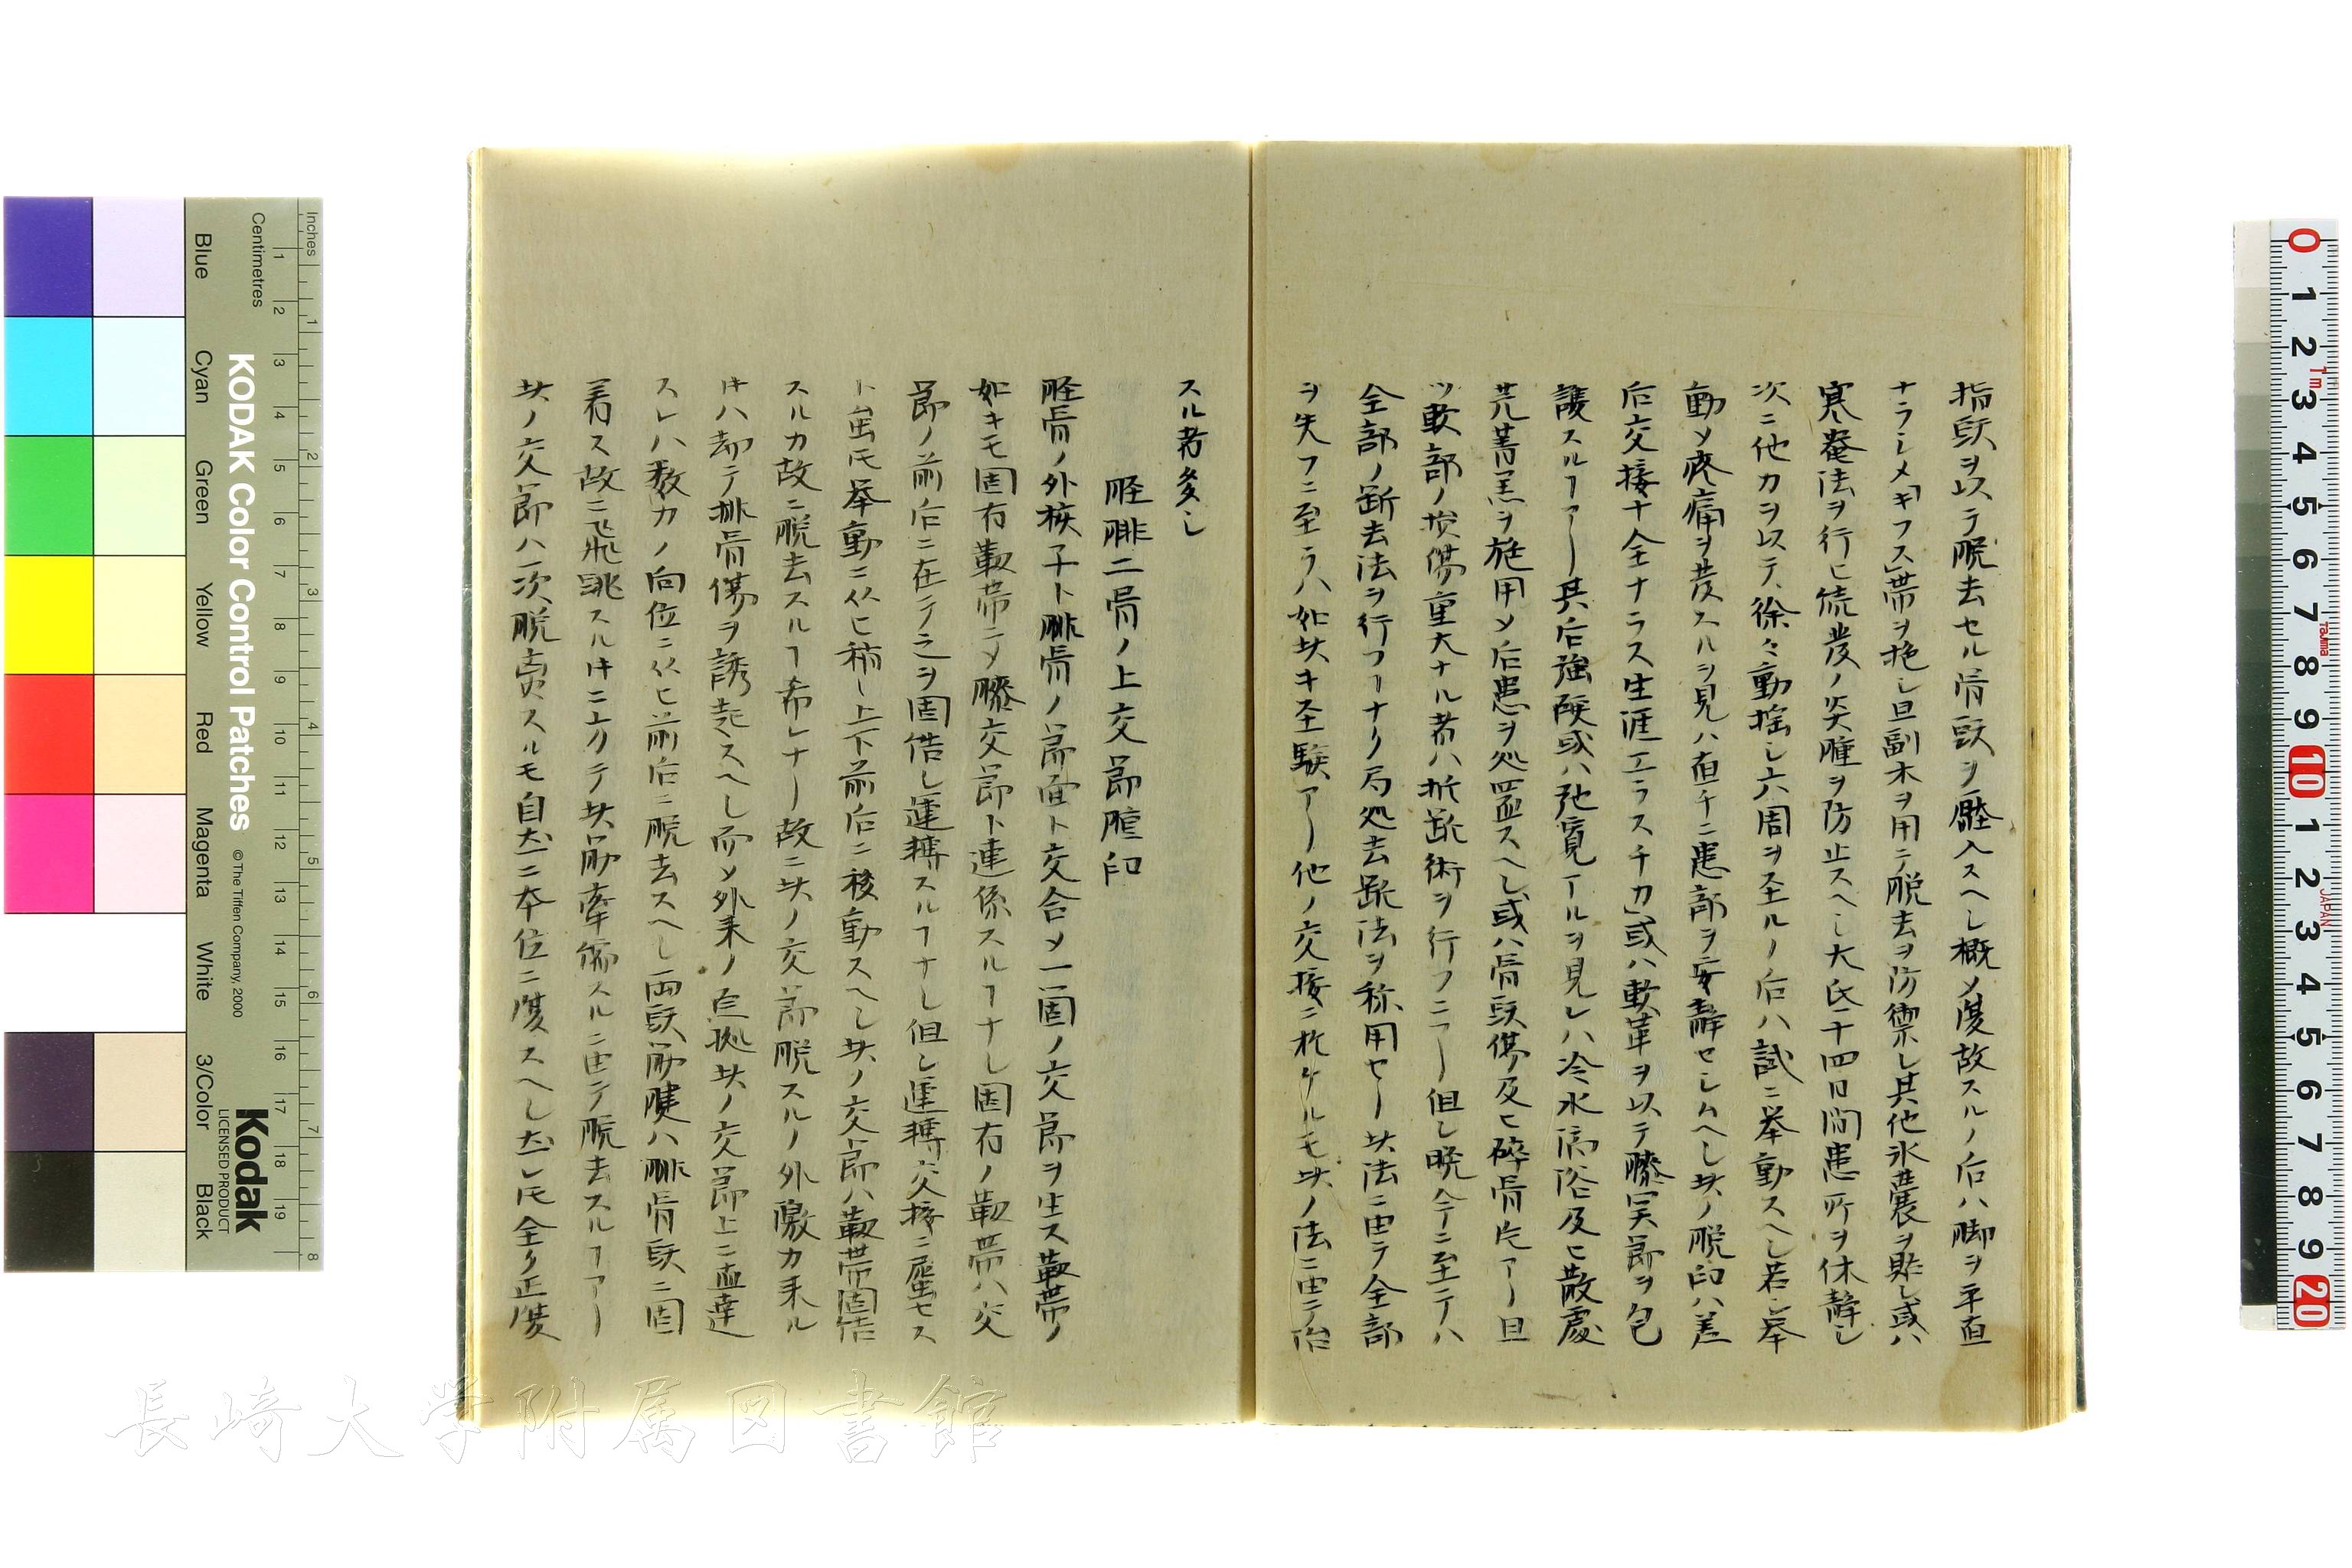 指頭ヲ以テ脱去セル骨頭ヲ壓入スヘシ概メ復故スルノ后ハ脚ヲ平直
ナラシメ「キフス」帯ヲ施シ且副木ヲ用テ脱去ヲ防禦シ其他氷囊ヲ貼シ或ハ
寒罨法ヲ行ヒ続発ノ炎腫ヲ防止スヘシ大氐十四日間患所ヲ休静シ
次ニ他力ヲ以テ徐々動揺シ六周ヲ至ルノ后ハ試ニ挙動スヘシ若シ挙
動メ疼痛ヲ発スルヲ見ハ直チニ患部ヲ安静セシムヘシ此ノ脱臼ハ差
后交接十全ナラス生涯「エラスチカ」或ハ軟革ヲ以テ膝関節ヲ包
護スルヿアリ其后強硬或ハ弛寛アルヲ見レハ冷水滴浴及ヒ散處
芫菁羔ヲ施用メ后患ヲ処置スヘシ或ハ骨頭傷及ヒ碎骨片アリ且
ツ軟部ノ損傷重大ナル者ハ折断術ヲ行フニアリ但シ晩今ニ至テハ
全部ノ断去法ヲ行フヿナク局処去断法ヲ称用セリ此法ニ由テ全部
ヲ失フニ至ラハ如此キ至験アリ他ノ交接ニ於ケルモ此ノ法ニ由テ治
スル者多シ
脛腓二骨ノ上交節脱臼
脛骨ノ外核子ト腓骨ノ節面ト交合メ一箇ノ交節ヲ生ス靱帯ノ
如キモ固有靱帯ニメ膝交節ト連係スルヿナシ固有ノ靱帯ハ交
節ノ前后ニ在テ之ヲ固倍シ運轉スルヿナシ但シ運轉交接ニ屬セス
ト虽𪜈挙動ニ从ヒ稍シ上下前后ニ移動スヘシ此ノ交節ハ靱帯固倍
スルカ故ニ脱去スルヿ希レナリ故ニ此ノ交節脱スルノ外激力来ル
キハ却テ腓骨傷ヲ誘起スヘシ而メ外来ノ 此ノ交節上ニ直達
スレハ数力ノ向位ニ从ヒ前后ニ脱去スヘシ両頭筋腱ハ腓骨頭ニ固
着ス故ニ飛跳スルキニ方テ此筋牽縮スルニ由テ脱去スルヿアリ
此ノ交節ハ一次脱 スルモ自然ニ本位ニ復スヘシ然レ𪜈全ク正復